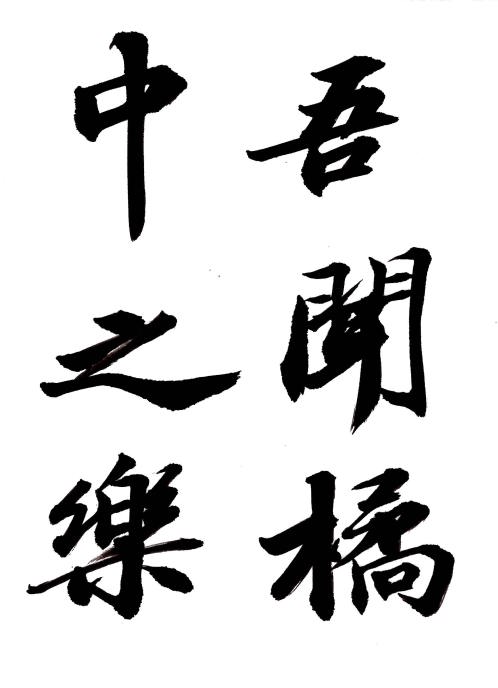 吾聞橘
中之樂